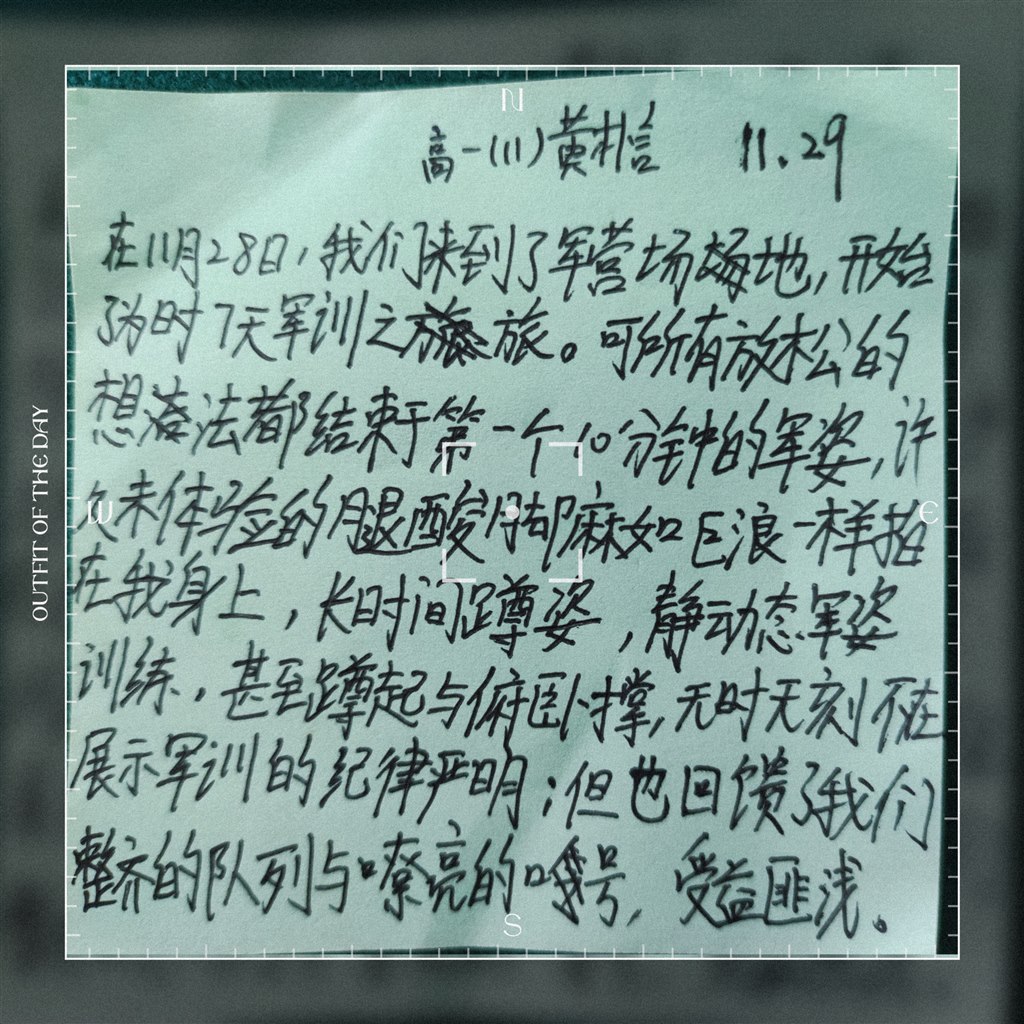 N
高一(11) 黄朴信 11.29
在11月28日,我们来到了军营场地,开始
了为时7天军训之旅。可所有放松的
想法都结束于第一个10分钟的军姿,许
久未体验的腿酸脚麻如巨浪一样拍
在我身上,长时间蹲姿,静动态军姿
训练,甚至蹲起与俯卧撑,无时无刻不在
展示军训的纪律严明;但也回馈了我们
整齐的队列与嘹亮的口号,受益匪浅。
W
E
S
OUTFIT OF THE DAY